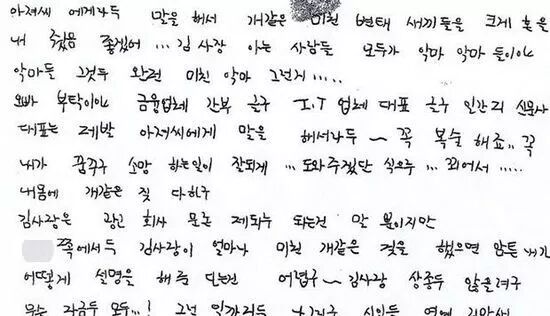 아저씨 에게라두 말을 해서 개같은 미친 변태 새끼들을 크게 혼을
내 줬음 좋겠어... 김사장 아는 사람들 모두가 악마 악마 들이야
악마들 그것두 완전 미친 악마 그런거.....
오빠 부탁이야 금융업체 간부 하구 I.T 업체 대표 하구 일간지 신문사
대표는 제발 아저씨에게 말을 해서라두~ 꼭 복술 해죠.. 꼭
내가 꿈꾸구 소망 하는일이 잘되게 ... 도와주겠단 식으루 ... 꾀어서.....
내몸에 개같은 짓 다하구
김사장은 광고 회사 문론 제의두 되는건 말 뿐이지만
쪽에서두 김사장이 얼마나 미친 개같은 짓을 했으면 암튼 내가
어떻게 설명을 해 준 다는건 어렵구~ 김사장 상종두 않을려구
자금두 모두...!